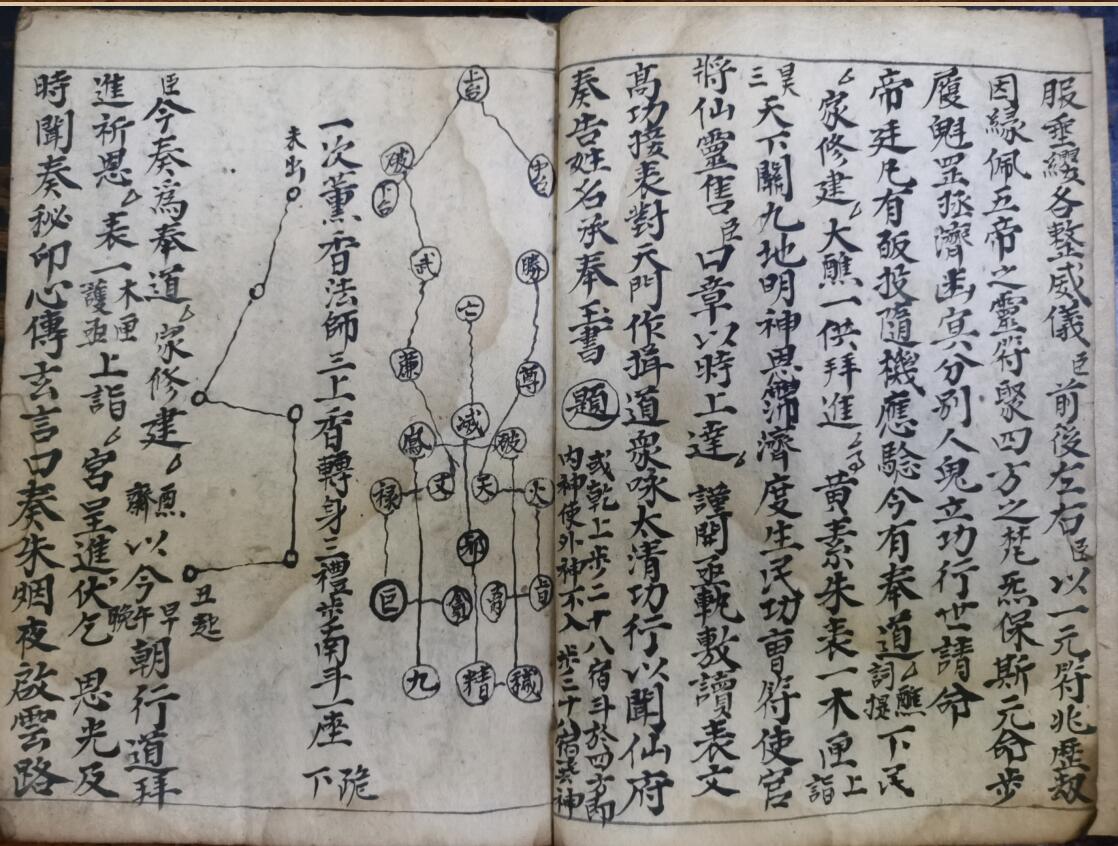 服垂纓各整威儀臣前後左右臣以一元符兆歷劫
因緣佩五帝之靈符聚四方之炁保斯元命步
履魁罡拯濟幽冥分別人鬼立功行世請命
帝廷凡有皈投隨機應驗今有奉道醮詞攝下民
家修建大醮一供拜進黃素朱表一木匣上詣
昊三天下關九地明神恩霈濟度生民功曹符使官
將仙靈臣口章以時上達謹關函執敷讀表文
高功接表對天門作揖道眾咏太清功行以聞仙府
奏告姓名承奉玉書 題 或乾上步二十八宿斗於四方即
內神使外神不入步三十八宿
上台
中台
破
下台
武
勝
七
廉
尊
破
祿
文
天
火
巨
九
精
一次薰香法師三上香轉身三禮步南斗一座 跪下
未出
丑起
臣今奏為奉道家修建齋以今早午晚朝行道拜
進祈恩表一木匣護函上詣宮呈進伏乞 恩光及
時聞奏秘印心傳玄言口奏朱烟夜啟雲路